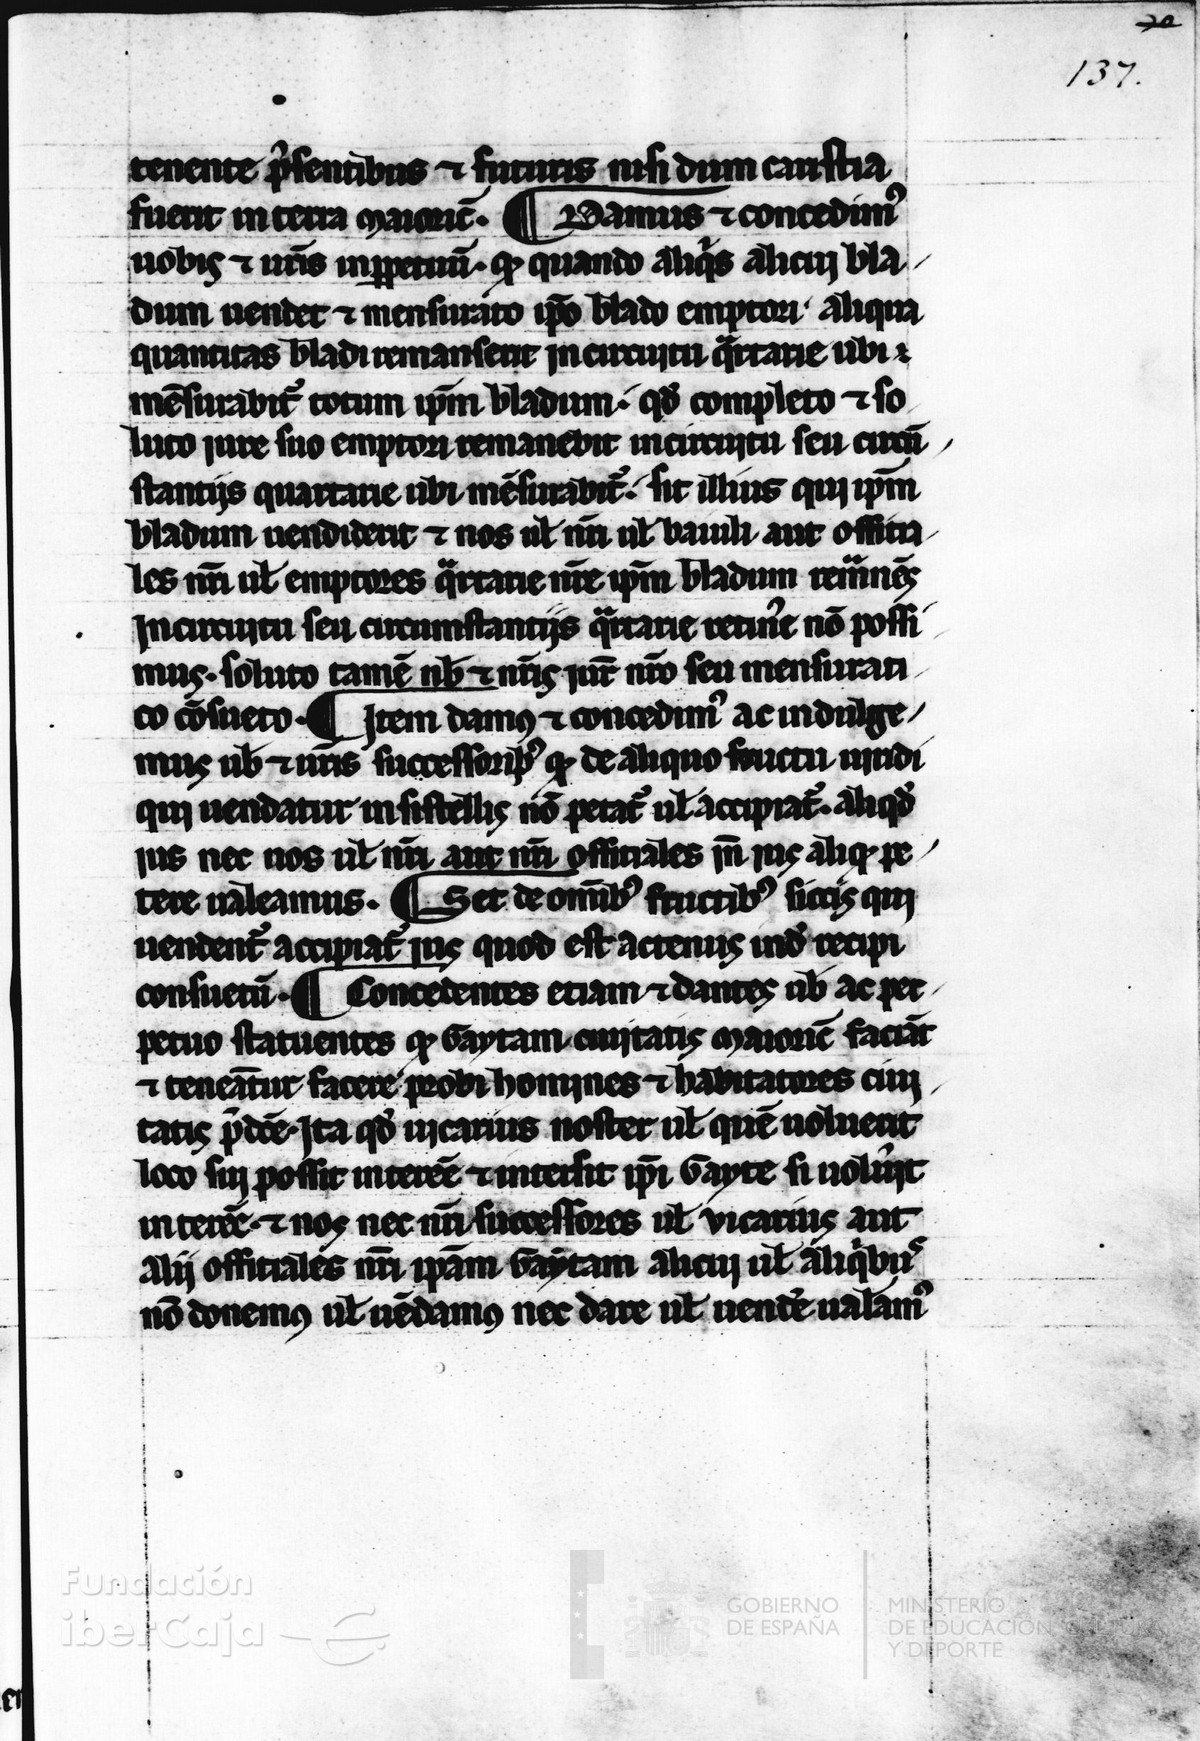 70
137.
tenente p̃sentibus ⁊ futuris nisi dum caristia
fuerit in terra Maioric̃. ¶ Damus ⁊ concedimꝰ
uobis ⁊ ur̃is inꝑpetuũ. ꝙ quando aliqͥs alicuj bla
dum uendet ⁊ mensurato ip̃o blado emptori aliqua
quantitas bladi remanserit in circuitu qͣrtarie ubi
mẽsurabit᷑ totum ip̃m bladum. qd̕ completo ⁊ so
luto iure suo emptori remanebit in circuitu seu circũ
stantijs quartarie ubi mẽsurabit᷑. sit illius qui ip̃m
bladum uendiderit ⁊ nos uł nr̃i uł baiuli aut offitia
les nr̃i uł emptores qͣrtarie nr̃e ip̃m bladum remͣnẽs
In circuitu seu circumstantijs qͣrtarie retin̕e nõ possi
mus. soluto tamẽ nob̕ ⁊ nr̃is jur̃ nr̃o seu mensurati
co cõsueto. ¶ Item damꝰ ⁊ concedimꝰ ac indulge
mus ub̕ ⁊ ur̃is successoribꝰ ꝙ de aliquo fructu uiridi
qui uendatur in sistellis nõ petat᷑ uł accipiat᷑. aliqd̕
jus nec nos uł nr̃i aut nr̃i offitiales jñ jus aliqͦ pe
tere ualeamus. ¶ Set de om̃ibꝰ fructibꝰ siccis qui
uendent᷑ accipiat᷑ jus quod est actenus ind̕ recipi
consuetũ. ¶ Concedentes etiam ⁊ dantes ub̕ ac per
petuo statuentes ꝙ Gaytam ciuitatis Maioric̃ faciãt
⁊ teneãtur facere probi homines ⁊ habitatores ciui
tatis p̃dc̃e. Ita qd̕ uicarius noster uł quẽ uoluerit
loco suj possit interẽe ⁊ intersit ip̃i Gayte si uoluͥit
interẽe. ⁊ nos nec nr̃i successores uł vicarius aut
alij offitiales nr̃i ip̃am Gaytam alicuj uł aliqͥbus
nõ donemꝰ uł uẽdamꝰ nec dare uł uend̕e ualeam̃ꝰ
Fundación
iberCaja
GOBIERNO
DE ESPAÑA
MINISTERIO
DE EDUCACIÓN, CULTURA
Y DEPORTE